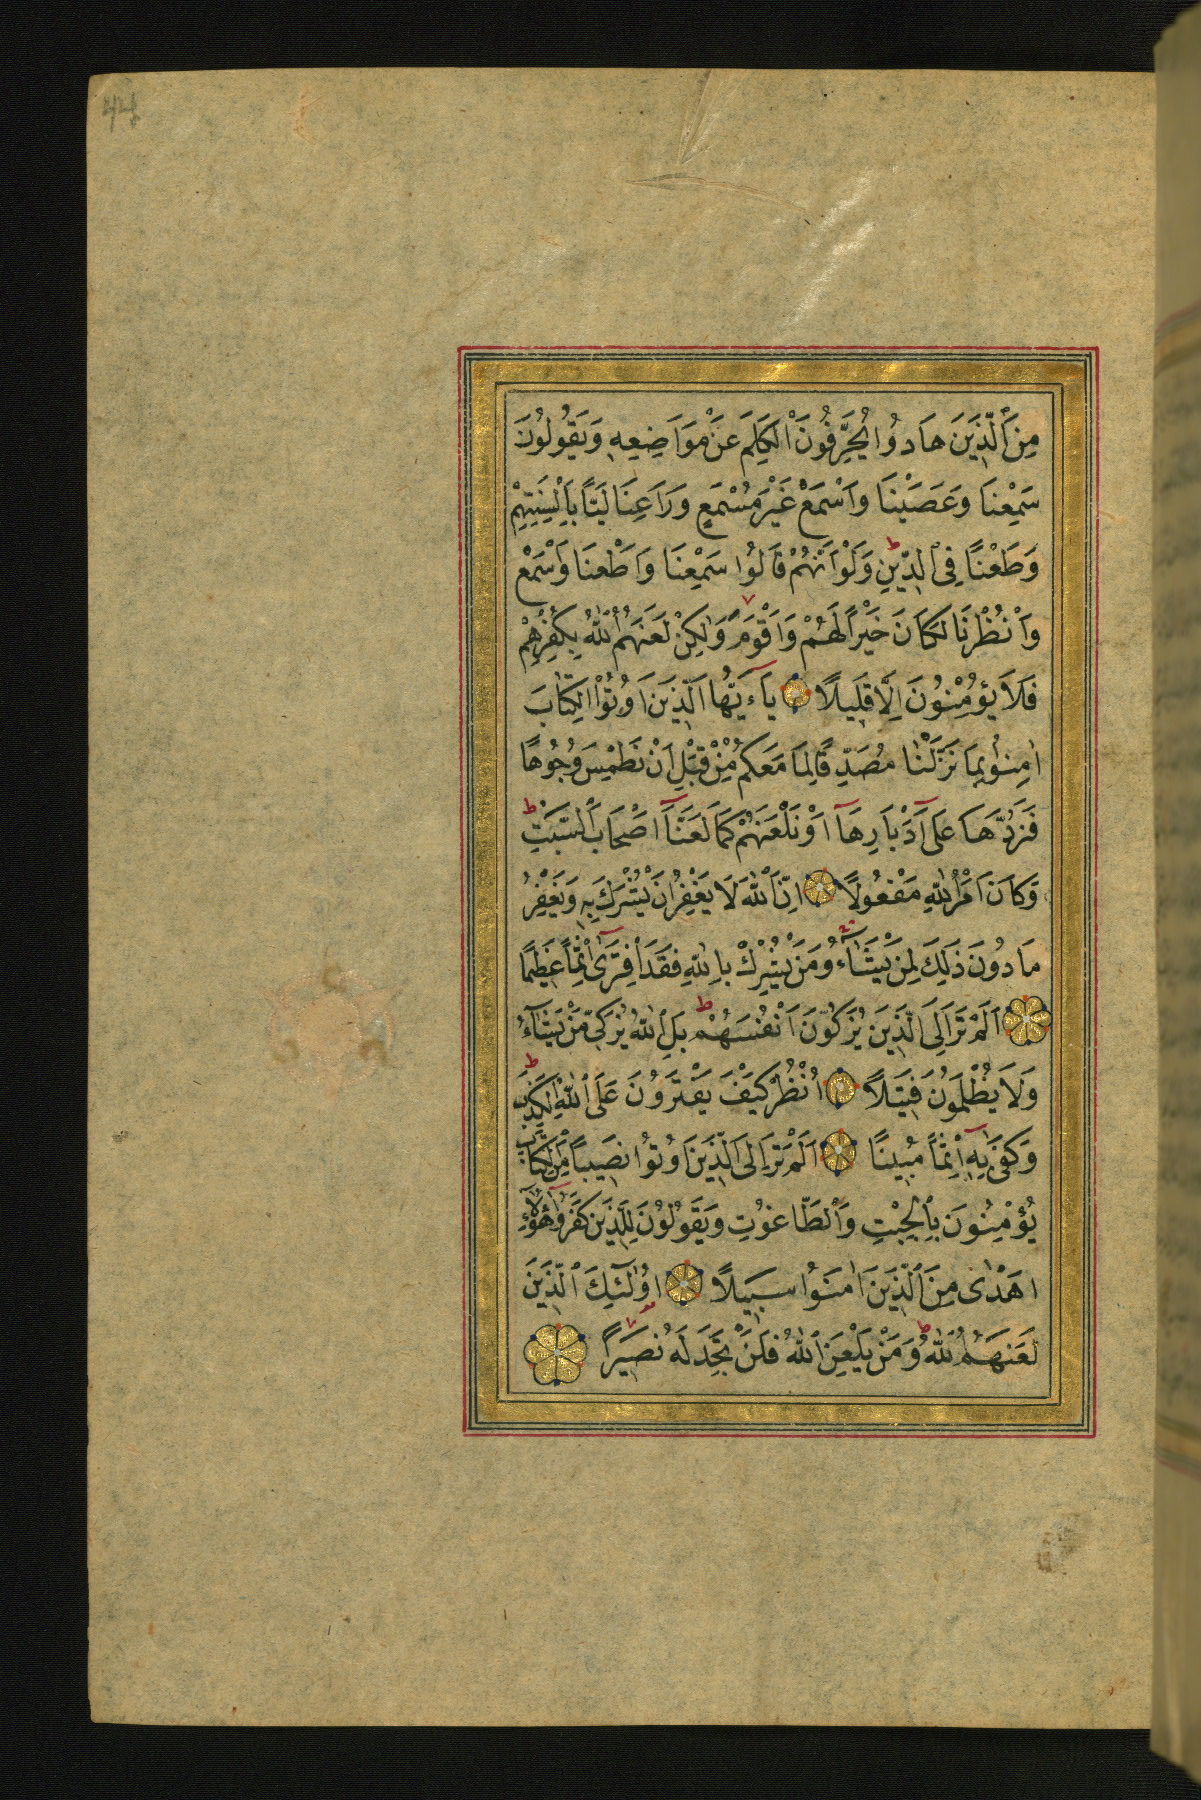 مِنَ الَّذِينَ هَادُوا يُحَرِّفُونَ الْكَلِمَ عَنْ مَوَاضِعِهِ وَيَقُولُونَ
سَمِعْنَا وَعَصَيْنَا وَاسْمَعْ غَيْرَ مُسْمَعٍ وَرَاعِنَا لَيًّا بِأَلْسِنَتِهِمْ
وَطَعْنًا فِي الدِّينِ ط وَلَوْ أَنَّهُمْ قَالُوا سَمِعْنَا وَأَطَعْنَا وَاسْمَعْ
وَانْظُرْنَا لَكَانَ خَيْرًا لَهُمْ وَأَقْوَمَ وَلٰكِنْ لَعَنَهُمُ اللّٰهُ بِكُفْرِهِمْ
فَلَا يُؤْمِنُونَ إِلَّا قَلِيلًا يَآ ءَيُّهَا الَّذِينَ أُوتُوا الْكِتَابَ
اٰمِنُوا بِمَا نَزَّلْنَا مُصَدِّقًا لِمَا مَعَكُمْ مِنْ قَبْلِ أَنْ نَطْمِسَ وُجُوهًا
فَنَرُدَّهَا عَلَى أَدْبَارِهَآ أَوْ نَلْعَنَهُمْ كَمَا لَعَنَّآ أَصْحَابَ السَّبْتِ ط
وَكَانَ أَمْرُ اللّٰهِ مَفْعُولًا إِنَّ اللّٰهَ لَا يَغْفِرُ أَنْ يُشْرَكَ بِهِ وَيَغْفِرُ
مَا دُونَ ذَلِكَ لِمَنْ يَشَآءُ وَمَنْ يُشْرِكْ بِاللّٰهِ فَقَدِ افْتَرٰى إِثْمًا عَظِيمًا
أَلَمْ تَرَ إِلَى الَّذِينَ يُزَكُّونَ أَنْفُسَهُمْ ط بَلِ اللّٰهُ يُزَكِّي مَنْ يَشَآءُ
وَلَا يُظْلَمُونَ فَتِيلًا اُنْظُرْ كَيْفَ يَفْتَرُونَ عَلَى اللّٰهِ الْكَذِبَ ط
وَكَفَى بِهِ إِثْمًا مُبِينًا أَلَمْ تَرَ إِلَى الَّذِينَ أُوتُوا نَصِيبًا مِنَ الْكِتَابِ
يُؤْمِنُونَ بِالْجِبْتِ وَالطَّاغُوتِ وَيَقُولُونَ لِلَّذِينَ كَفَرُوا هٰٓؤُلَآءِ
أَهْدٰى مِنَ الَّذِينَ اٰمَنُوا سَبِيلًا أُولٰٓئِكَ الَّذِينَ
لَعَنَهُمُ اللّٰهُ ط وَمَنْ يَلْعَنِ اللّٰهُ فَلَنْ تَجِدَ لَهُ نَصِيرًا